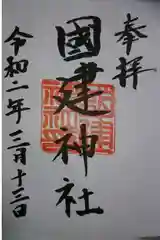 奉拝
國建神社
令和二年三月十三日